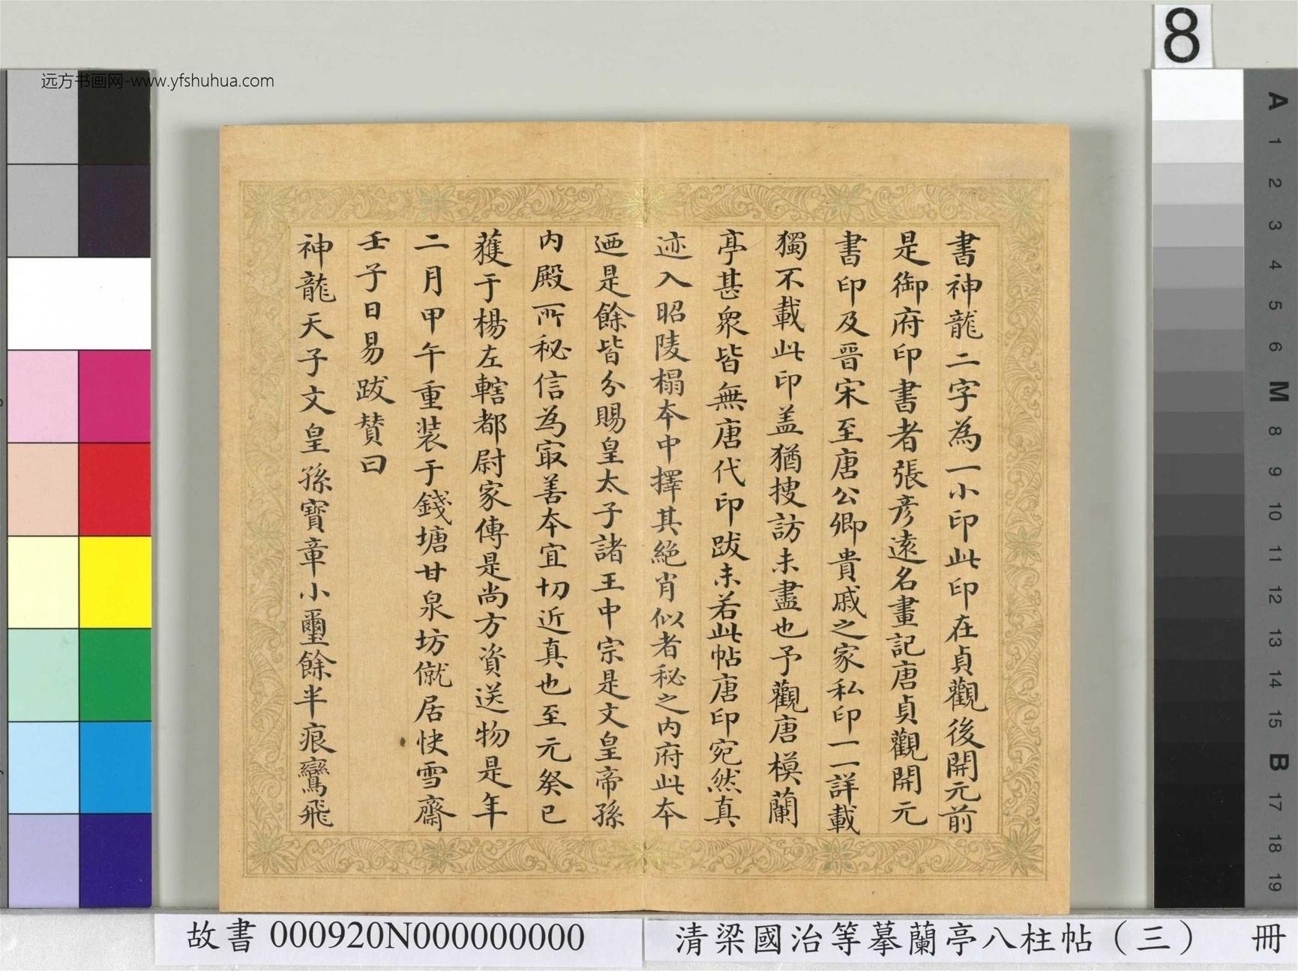 远方书画网-www.yfshuhua.com
8
書神龍二字為一小印此印在貞觀後開元前
是御府印書者張彦遠名畫記唐貞觀開元
書印及晋宋至唐公卿貴戚之家私印一一詳載
獨不載此印盖猶捜訪未盡也予觀唐模蘭
亭甚衆皆無唐代印跋未若此帖唐印宛然真
迹入昭陵榻本中擇其絶肖似者秘之内府此本
迺是餘皆分賜皇太子諸王中宗是文皇帝孫
内殿所秘信為㝡善本宜切近真也至元癸巳
獲于楊左轄都尉家傳是尚方資送物是年
二月甲午重装于錢塘甘泉坊僦居快雪齋
壬子日易跋賛曰
神龍天子文皇孫寳章小璽餘半痕鸞飛
A
1
2
3
4
5
6
M
8
9
10
11
12
13
14
15
B
17
18
19
故書 000920N000000000
清梁國治等摹蘭亭八柱帖（三） 冊